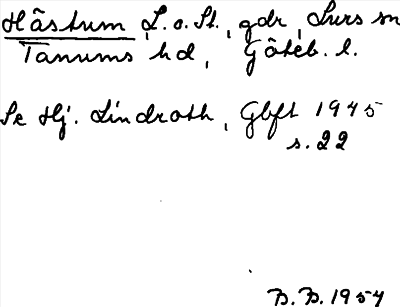 Håstum, L. o. St., gdr, Lurs sn
Tanums hd, Göteb. l.
Se Hj. Lindroth, Gbft 1945
s. 22
B. B. 1954